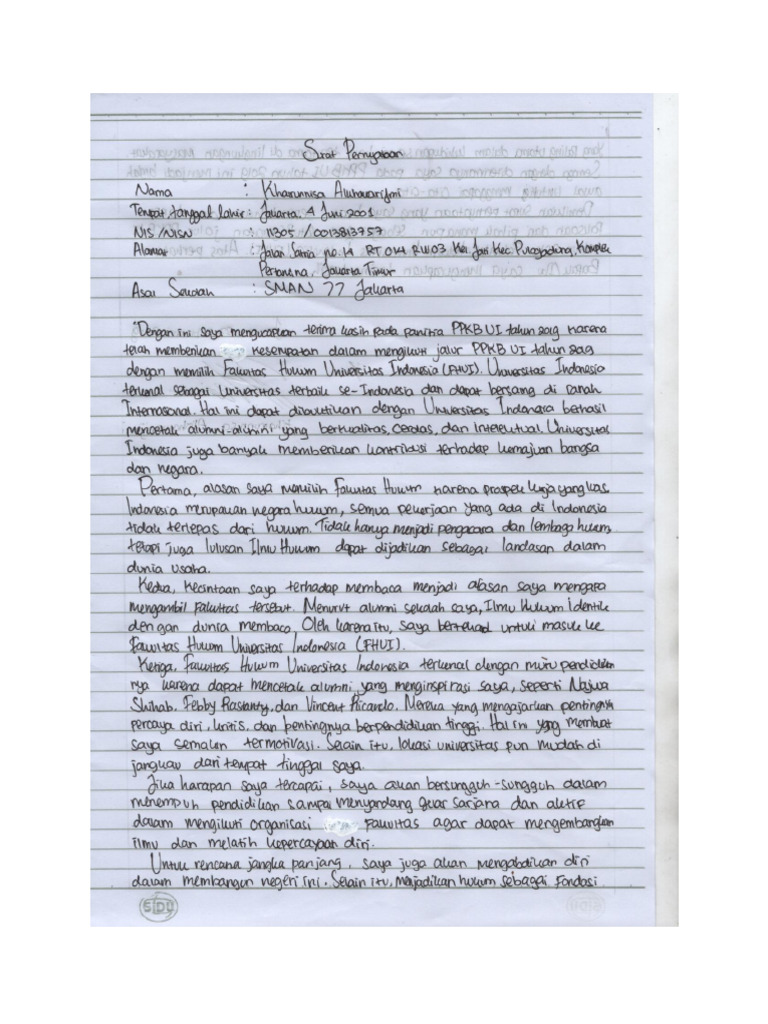 Surat Pernyataan
Nama : Khairunnisa
Tempat tanggal lahir : Jakarta, 4 Juni 2001
NIS / NISN : 11305 / 0013813757
Alamat : Jalan no. 14 RT 014 RW 03 Kel. Jati Kec. Pulogadung, Komplek
Pertamina, Jakarta Timur
Asal Sekolah : SMAN 77 Jakarta
"Dengan ini saya mengucapkan terima kasih pada panitia PPKB UI tahun 2019 karena
telah memberikan kesempatan dalam mengikuti jalur PPKB UI tahun 2019
dengan memilih Fakultas Hukum Universitas Indonesia (FHUI). Universitas Indonesia
terkenal sebagai Universitas terbaik se-Indonesia dan dapat bersaing di ranah
Internasional. Hal ini dapat dibuktikan dengan Universitas Indonesia berhasil
mencetak alumni-alumni yang berkualitas, cerdas, dan intelektual. Universitas
Indonesia juga banyak memberikan kontribusi terhadap kemajuan bangsa
dan negara.
Pertama, alasan saya memilih Fakultas Hukum karena prospek kerja yang luas
Indonesia merupakan negara hukum, semua pekerjaan yang ada di Indonesia
tidak terlepas dari hukum. Tidak hanya menjadi pengacara dan lembaga hukum,
tetapi juga lulusan Ilmu Hukum dapat dijadikan sebagai landasan dalam
dunia usaha.
Kedua, kecintaan saya terhadap membaca menjadi alasan saya mengapa
mengambil fakultas tersebut. Menurut alumni sekolah saya, Ilmu Hukum identik
dengan dunia membaca. Oleh karena itu, saya bertekad untuk masuk ke
Fakultas Hukum Universitas Indonesia (FHUI).
Ketiga, Fakultas Hukum Universitas Indonesia terkenal dengan mutu pendidikan
nya karena dapat mencetak alumni yang menginspirasi saya, seperti Najwa
Shihab, Febby dan Vincent Ricardo. Mereka yang mengajarkan pentingnya
percaya diri, kritis, dan pentingnya berpendidikan tinggi. Hal ini yang membuat
saya semakin termotivasi. Selain itu, lokasi universitas pun mudah di
jangkau dari tempat tinggal saya.
Jika harapan saya tercapai, saya akan bersungguh-sungguh dalam
menempuh pendidikan sampai menyandang gelar sarjana dan aktif
dalam mengikuti organisasi Fakultas agar dapat mengembangkan
ilmu dan melatih kepercayaan diri.
Untuk rencana jangka panjang, saya juga akan mengabdikan diri
dalam membangun negeri ini. Selain itu, menjadikan hukum sebagai fondasi
SIDU